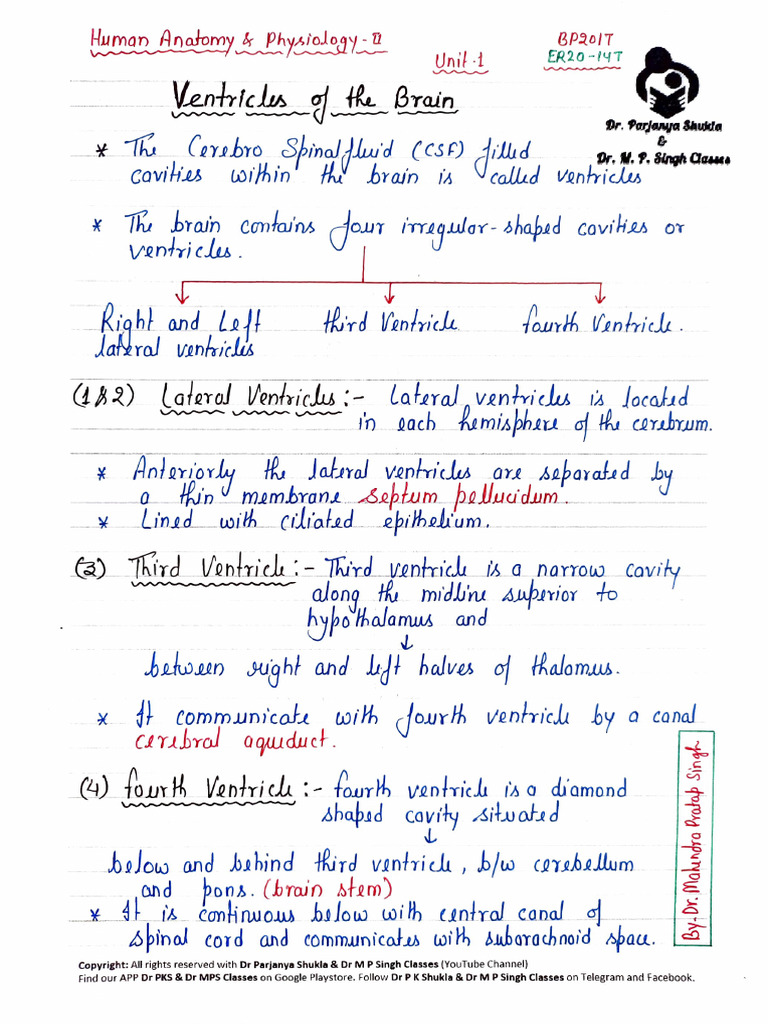 Human Anatomy & Physiology-II
BP201T
Unit-1
ER20-14T
Dr. Parjanya Shukla
&
Dr. M. P. Singh Classes
Ventricles of the Brain
* The Cerebro Spinal fluid (CSF) filled
cavities within the brain is called ventricles
* The brain contains four irregular-shaped cavities or
ventricles.
Right and Left third Ventricle fourth Ventricle.
lateral ventricles
(1&2) Lateral Ventricles:- Lateral ventricles is located
in each hemisphere of the cerebrum.
* Anteriorly the lateral ventricles are separated by
a thin membrane septum pellucidum.
* Lined with ciliated epithelium.
(3) Third Ventricle:- Third ventricle is a narrow cavity
along the midline superior to
hypothalamus and
between right and left halves of thalamus.
* It communicate with fourth ventricle by a canal
cerebral aqueduct.
(4) fourth Ventricle:- fourth ventricle is a diamond
shaped cavity situated
below and behind third ventricle, b/w cerebellum
and pons. (brain stem)
* It is continuous below with central canal of
spinal cord and communicates with subarachnoid space.
By-Dr. Mahendra Pratap Singh
Copyright: All rights reserved with Dr Parjanya Shukla & Dr M P Singh Classes (YouTube Channel)
Find our APP Dr PKS & Dr MPS Classes on Google Playstore. Follow Dr P K Shukla & Dr M P Singh Classes on Telegram and Facebook.